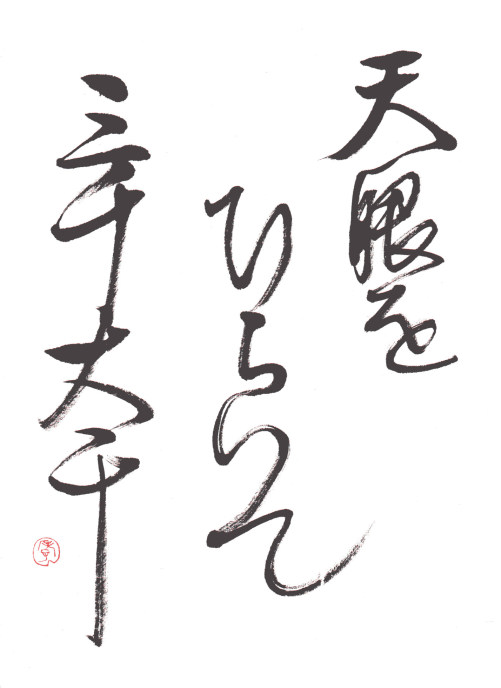 天眼を
ひらいて
三千大千